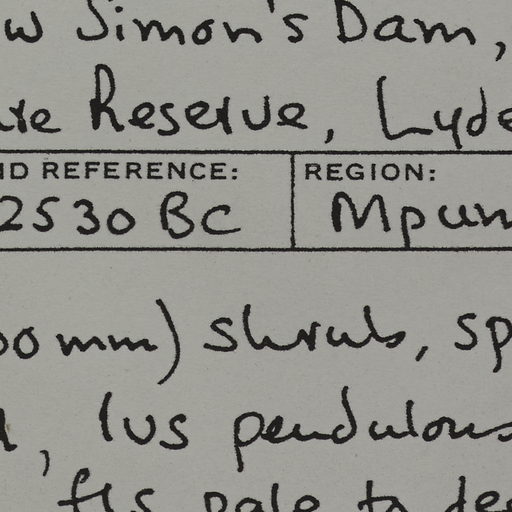 w Simon's Dam,
ure Reserve, Lyde
ID REFERENCE: REGION:
2530 BC Mpum
00 mm) shrub, sp
, lvs pendulous
fls pale to dee